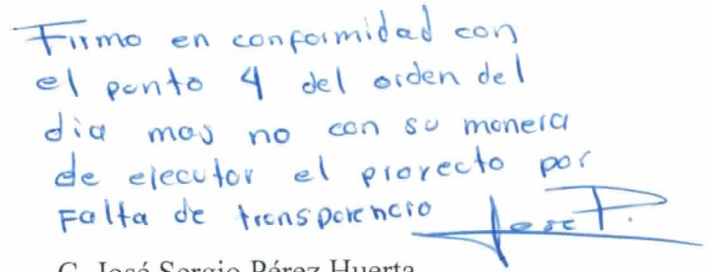 Firmo en conformidad con
el punto 4 del orden del
dia mas no con su manera
de ejecutar el proyecto por
Falta de transparencia Jose P.
C. José Sergio Pérez Huerta